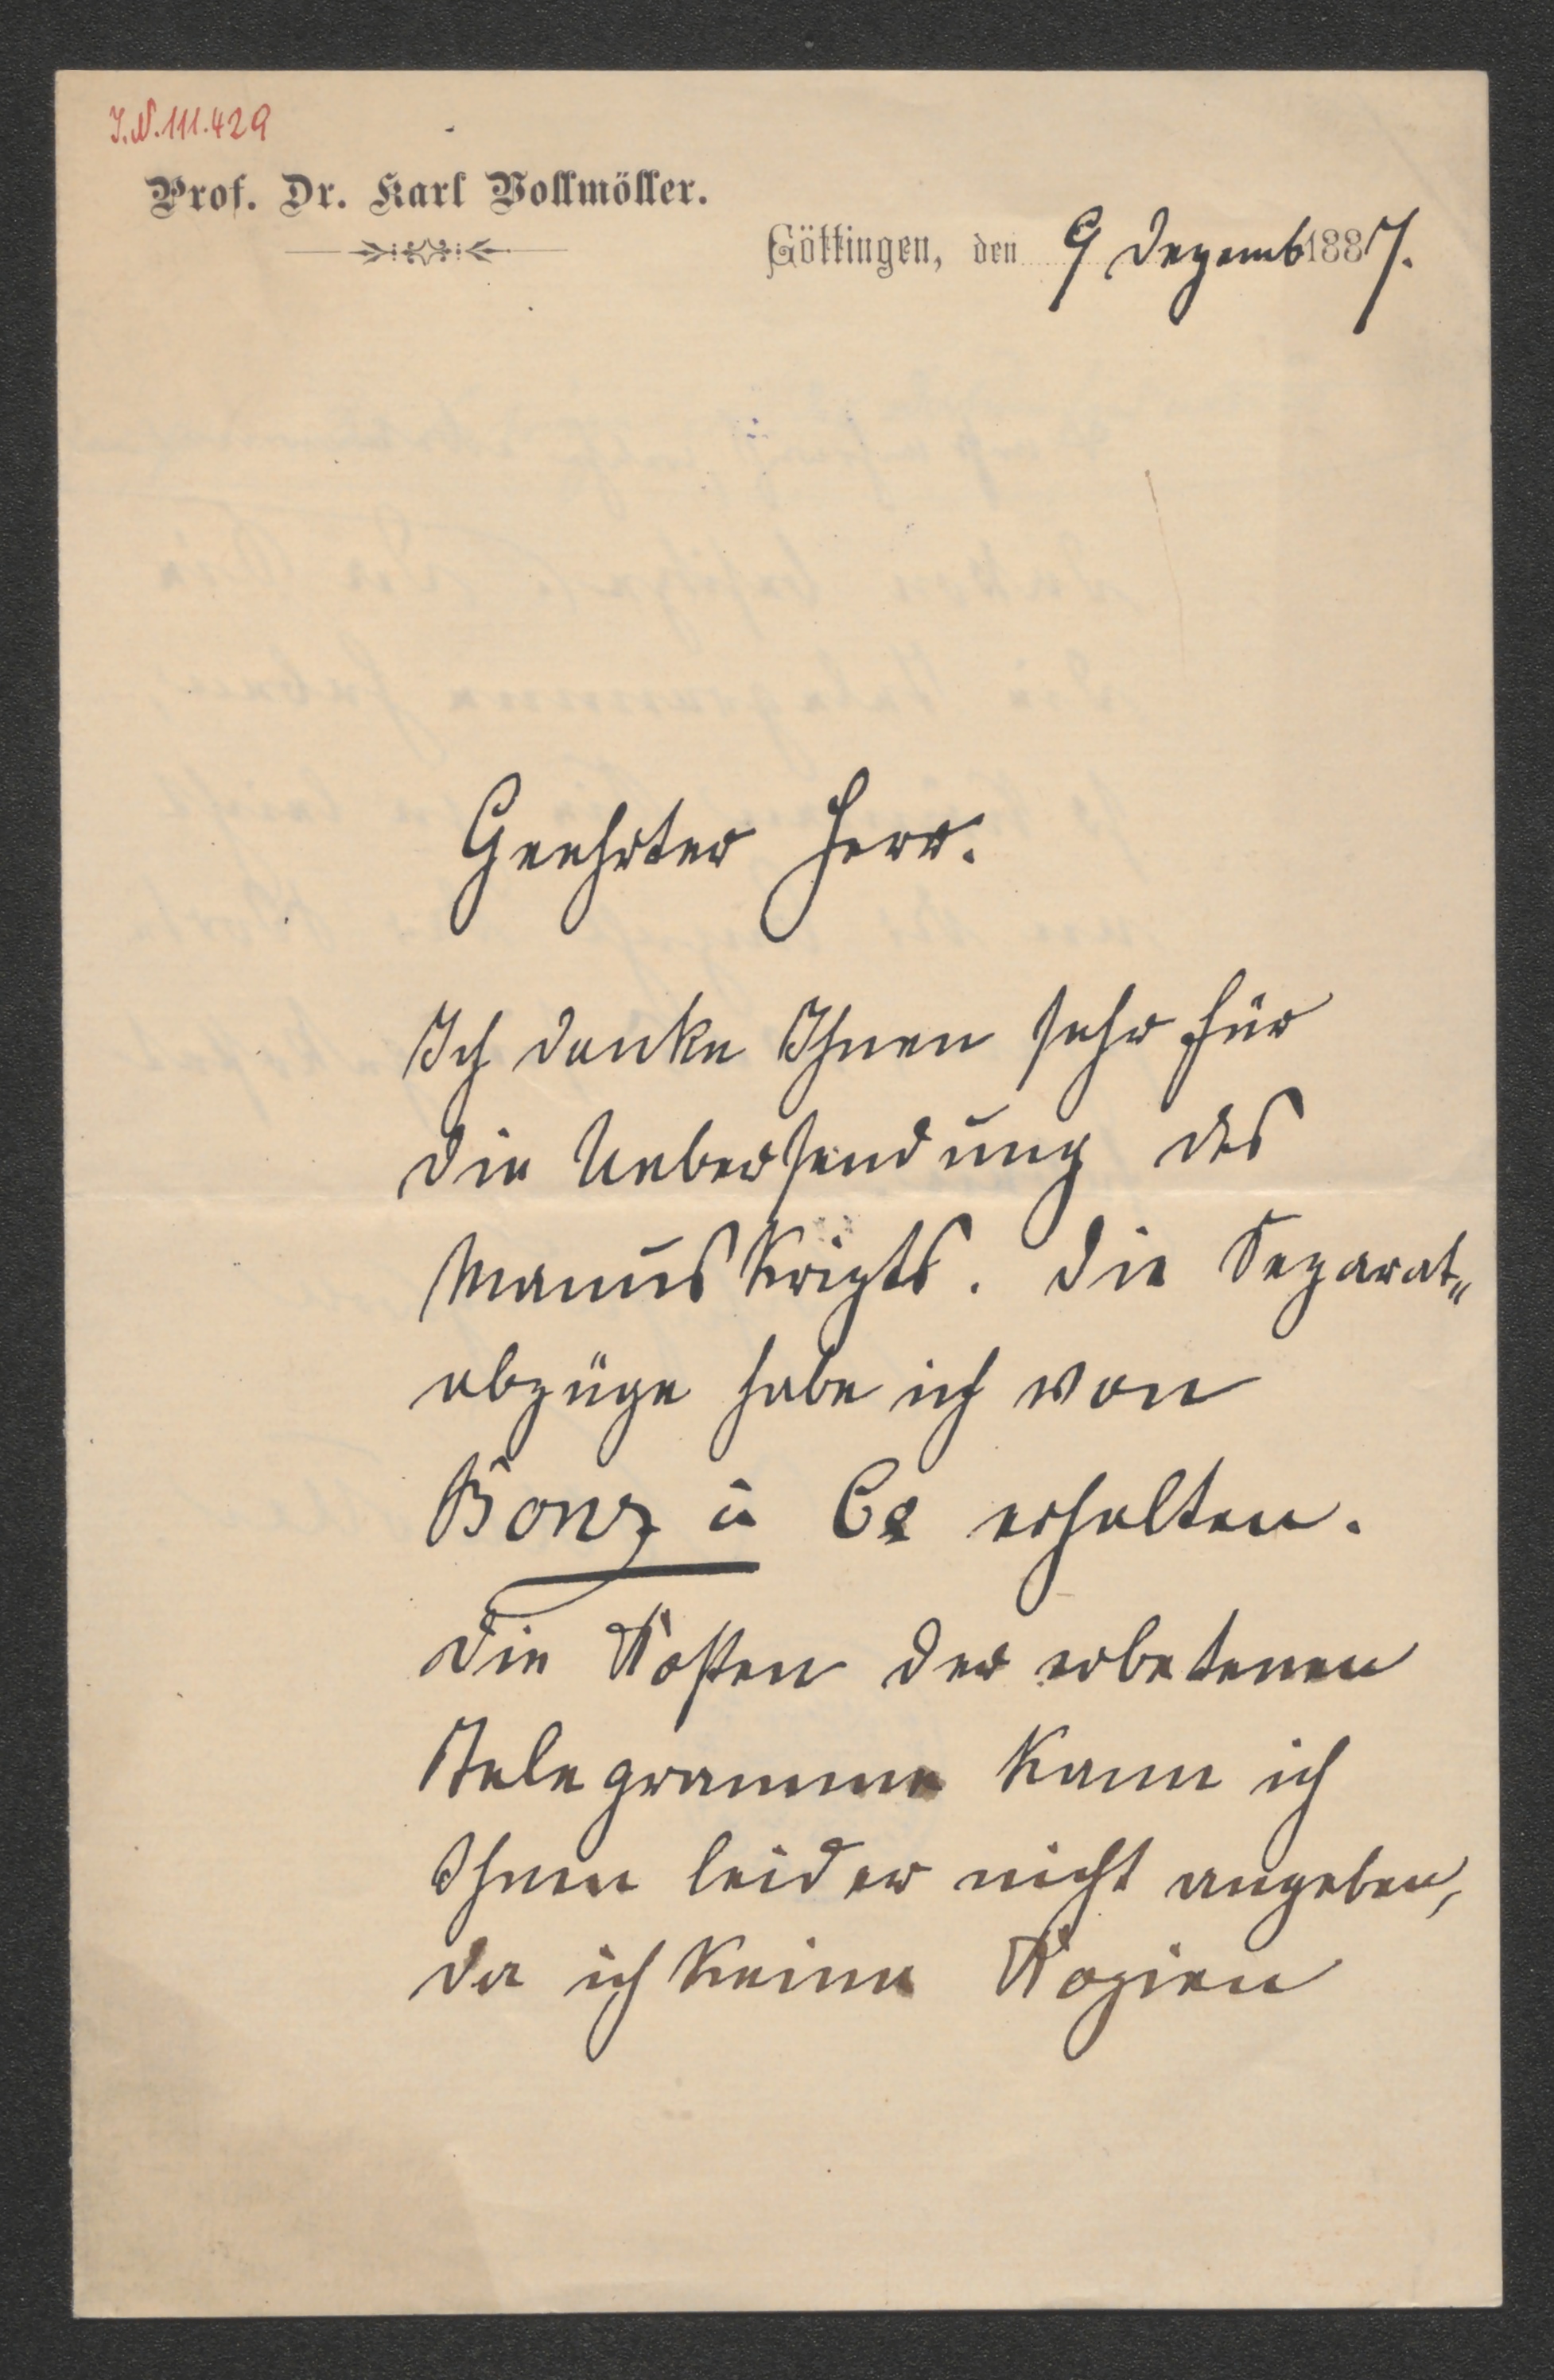 I.N.111.429
Prof. Dr. Karl Vollmöller.
Göttingen, den 9 Dezemb 1887.
Geehrter Herr.
Ich danke Ihnen sehr für
die Uebersendung des
Manuskripts. Die Separat„
abzüge habe ich von
Bonz u Co erhalten.
Die Kosten der erbetenen
Telegramme kann ich
Ihnen leider nicht angeben,
da ich keine Kopien